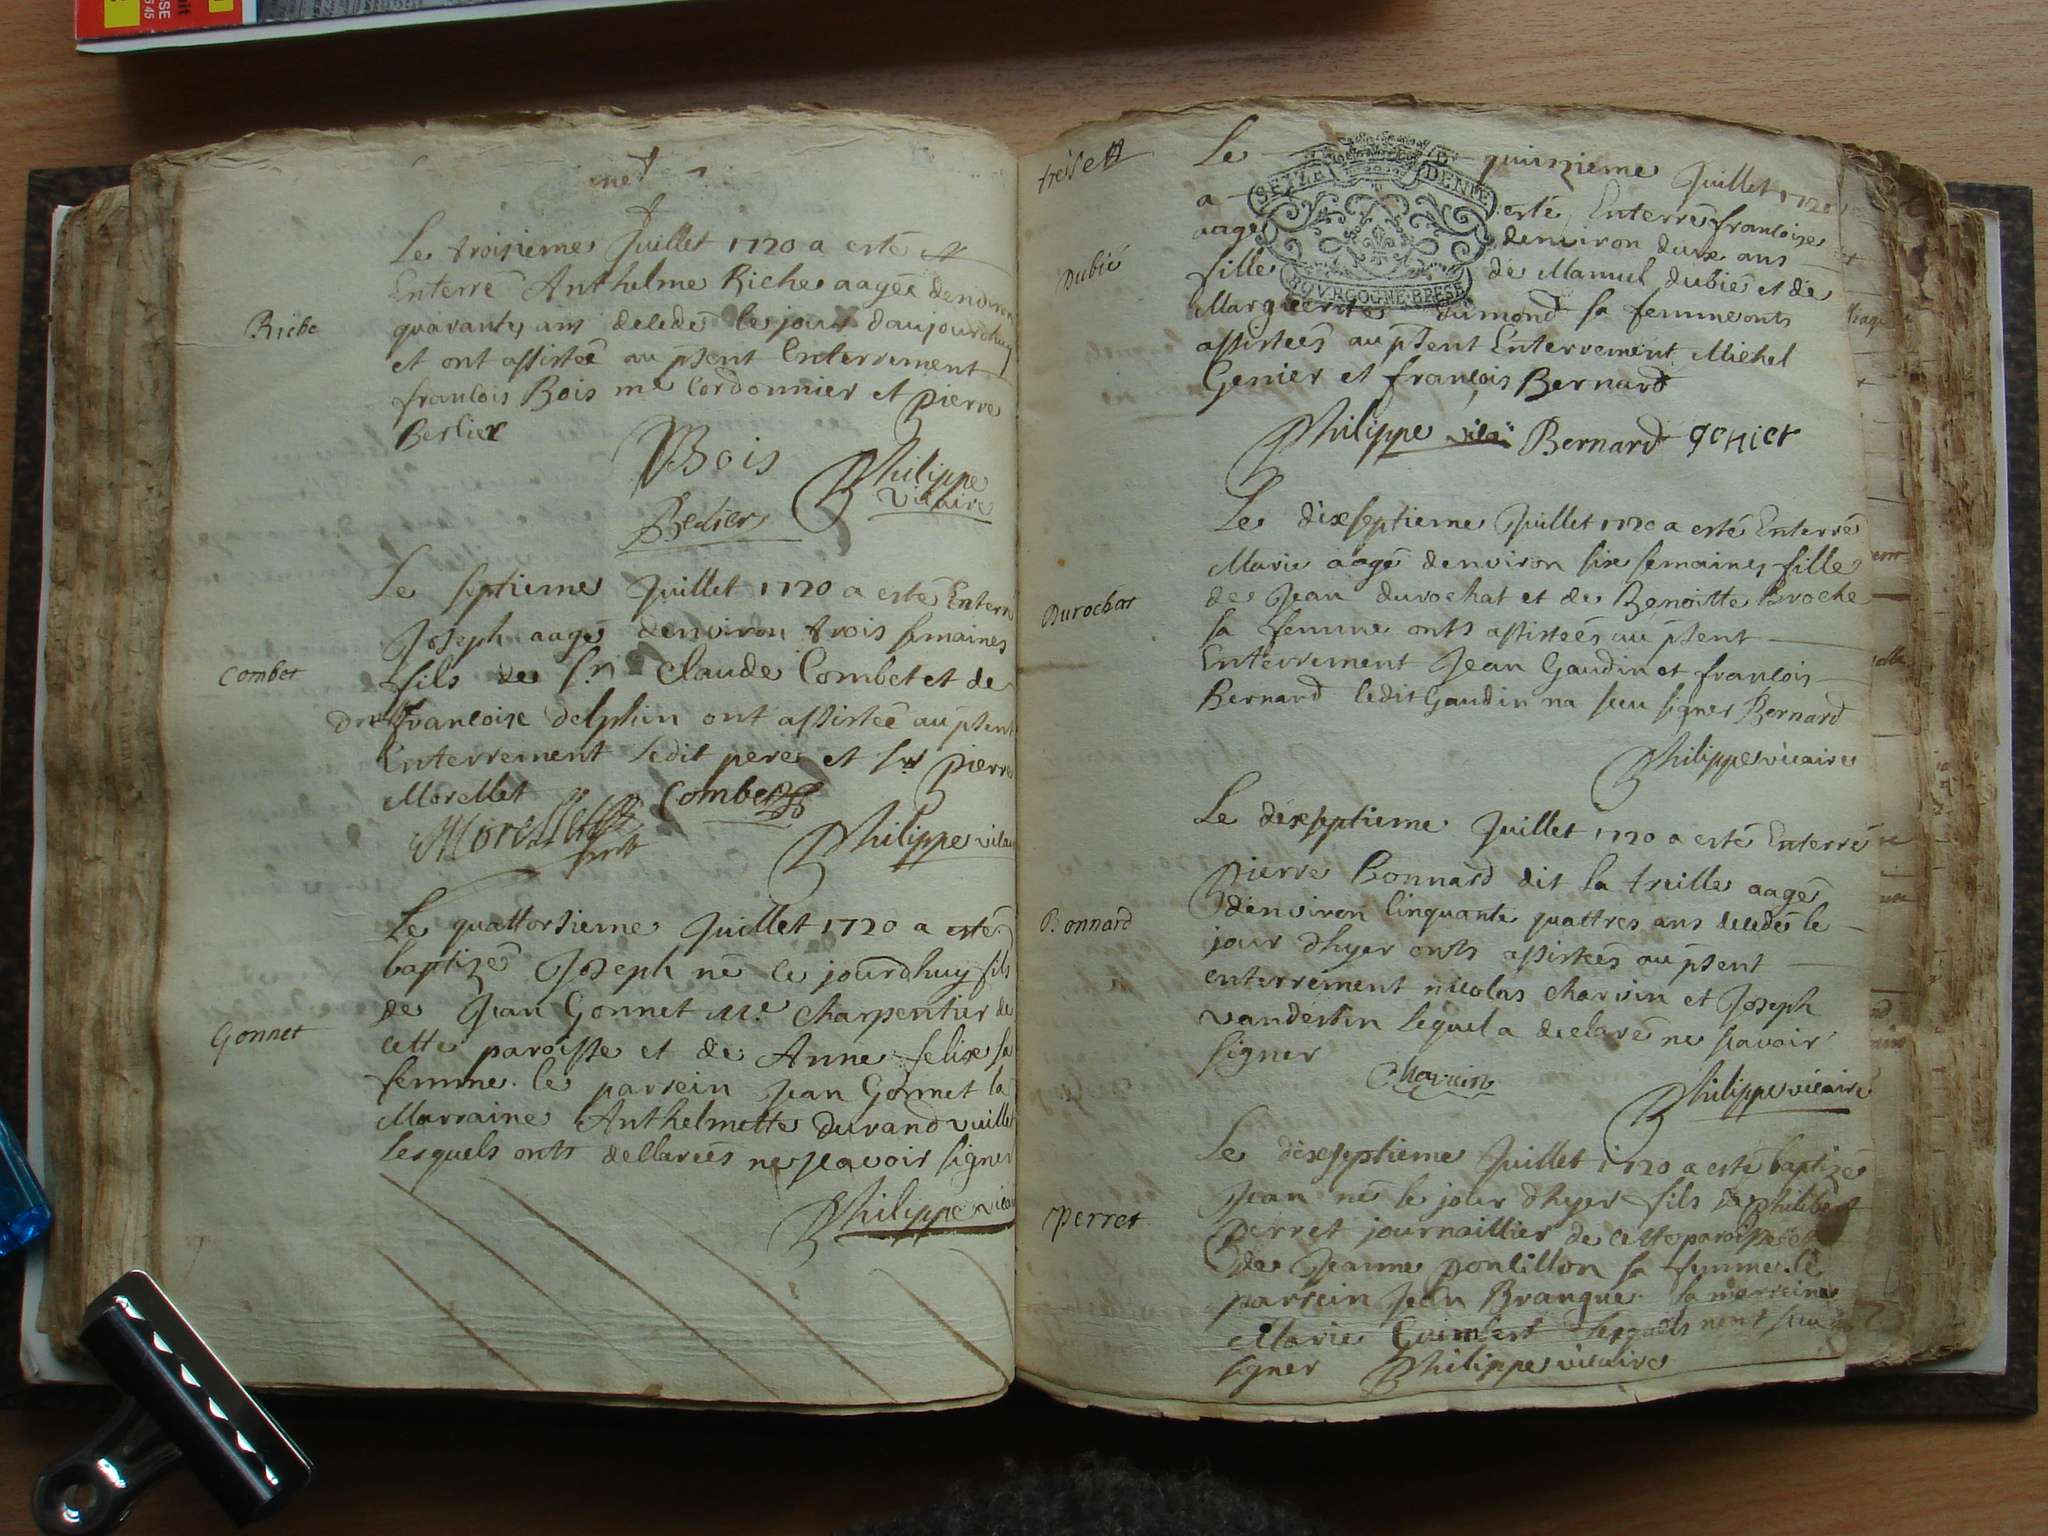 Le troisieme Juillet 1720 a esté
Enterré Anthelme Riche aagée denviron
Riche
quarantes ans decedé le jour daujourdhuy
et ont assistée au pسent Enterrement
francois Bois me Cordonnier et pierre
Berlier
Bois
Philippe
vicaire
Berlier
Le septieme Juillet 1720 a esté Enterré
Joseph aagé denviron trois semaines
Combet
fils de Sr Claude Combet et de
francoise delphin ont assistée au psent
Enterrement ledit pere et Sr pierre
Morellet
Combet
Morellet
Philippe vicai
Le quattorsieme Juillet 1720 a esté
baptizé Joseph né ce jourdhuy fils
de Jean Gonnet me. Charpentier de
Gonnet
cette paroisse et de Anne felix sa
femme. le parrein Jean Gonnet la
Marraine Anthelmette durand
Lesquels onts decllarées ne scavoir signer
Philippe vicai
treise
Le quinzieme Juillet 1720
a esté Enterré francoise
SEIZE DENIE
aagé denviron deux ans
Dubié
fille de Manuel dubié et de
BOVRGOGNE BRESE
Marguerite dumond sa femme onts
assistées au psent Enterrement Michel
Genier et francois Bernard
Philippe vicai Bernard genier
Le dixseptieme Juillet 1720 a esté Enterré
Marie aagé denviron six semaines fille
Durochat
de Jean durochat et de Benoitte Broche
sa femme onts assistées au psent
Enterrement Jean Gaudin et francois
Bernard ledit Gaudin na sceu signer Bernard
Philippe vicaire
Le dixseptieme Juillet 1720 a esté Enterré
pierre bonnard dit la treille aagé
Bonnard
denviron cinquante quattres ans decedé le
jour dhyer onts assistées au psent
enterrement nicolas charvin et Joseph
vandestin lequel a declaré ne scavoir
signer
Charvin
Philippe vicaire
Le dixseptieme Juillet 1720 a esté baptizé
Jean né le jour dhyer fils de philibert
perret
perret journaillier de cette paroisse et
de Jeanne poncillon sa femme. le
parrein Jean Branque. la marreine
Marie Guimbert lesquels nont sceu
signer Philippe vicaire